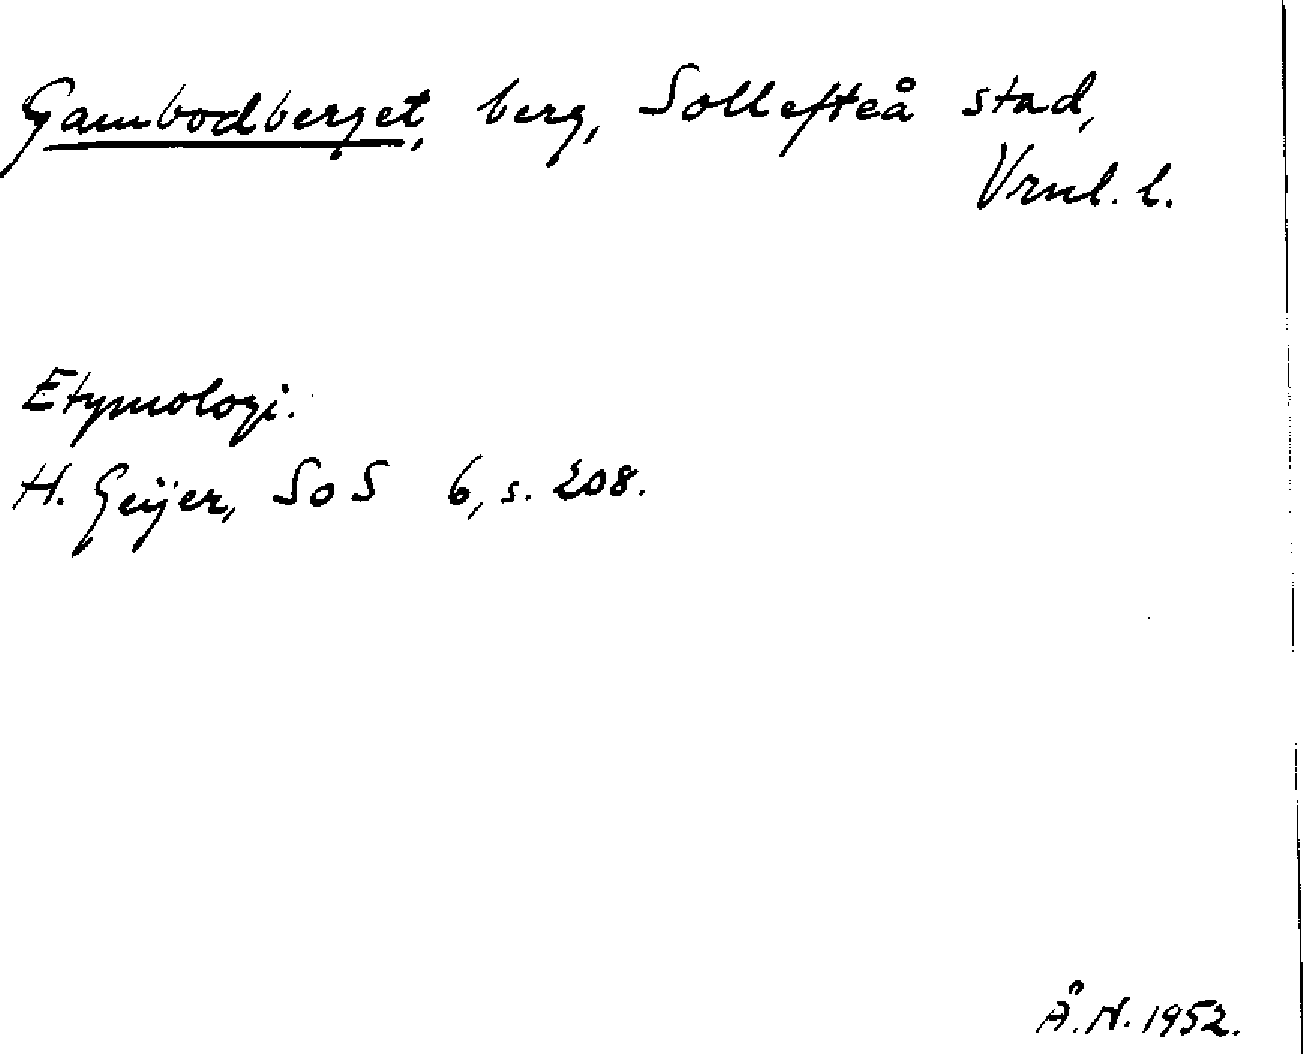 Gambodberget, berg, Sollefteå stad,
Vrnl. l.
Etymologi.
H. Geijer, SoS 6, s. 208.
Å.N. 1952.